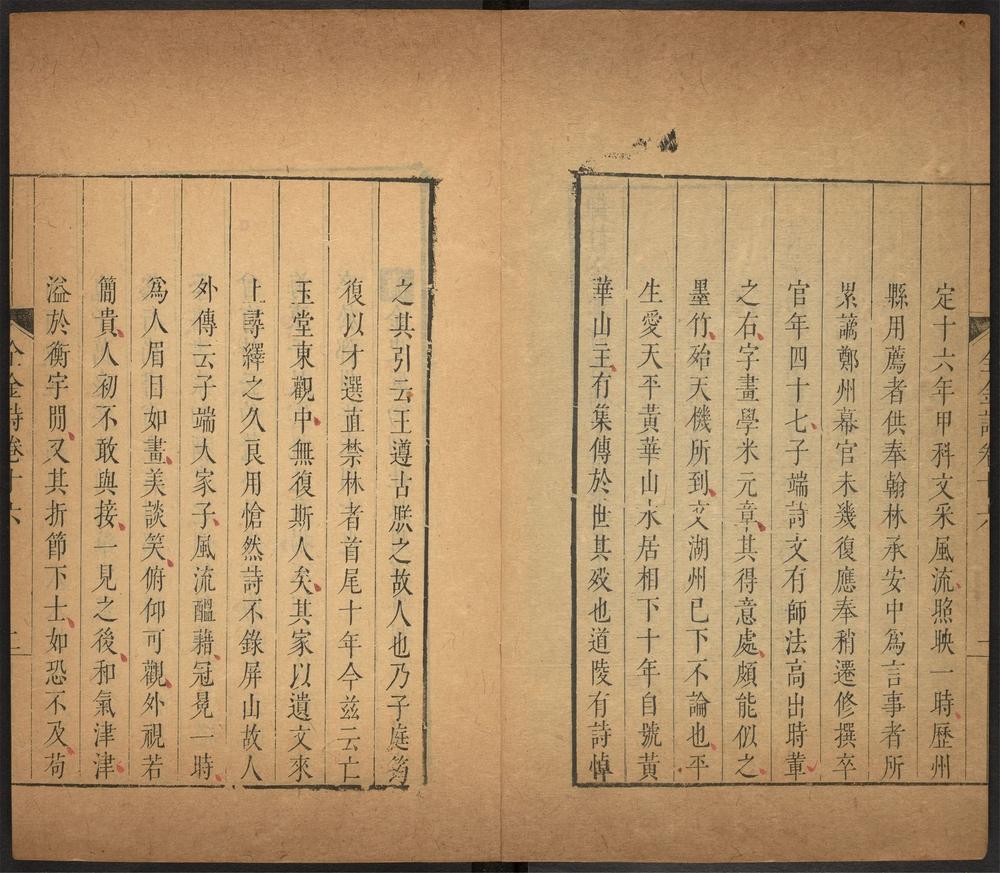 定十六年甲科文采風流照映一時歷州
縣用薦者供奉翰林承安中爲言事者所
累謫鄭州幕官未幾復應奉稍遷修撰卒
官年四十七子端詩文有師法高出時輩
之右字畫學米元章其得意處頗能似之
墨竹殆天機所到文湖州已下不論也平
生愛天平黃華山水居相下十年自號黃
華山主有集傳於世其歿也道陵有詩悼
之其引云王遵古朕之故人也乃子庭筠
復以才選直禁林者首尾十年今茲云亡
玉堂東觀中無復斯人矣其家以遺文來
上尋繹之久良用愴然詩不錄屏山故人
外傳云子端大家子風流醞藉冠冕一時
爲人眉目如畫美談笑俯仰可觀外視若
簡貴人初不敢與接一見之後和氣津津
溢於衡宇間又其折節下士如恐不及苟
全金詩卷十六
二